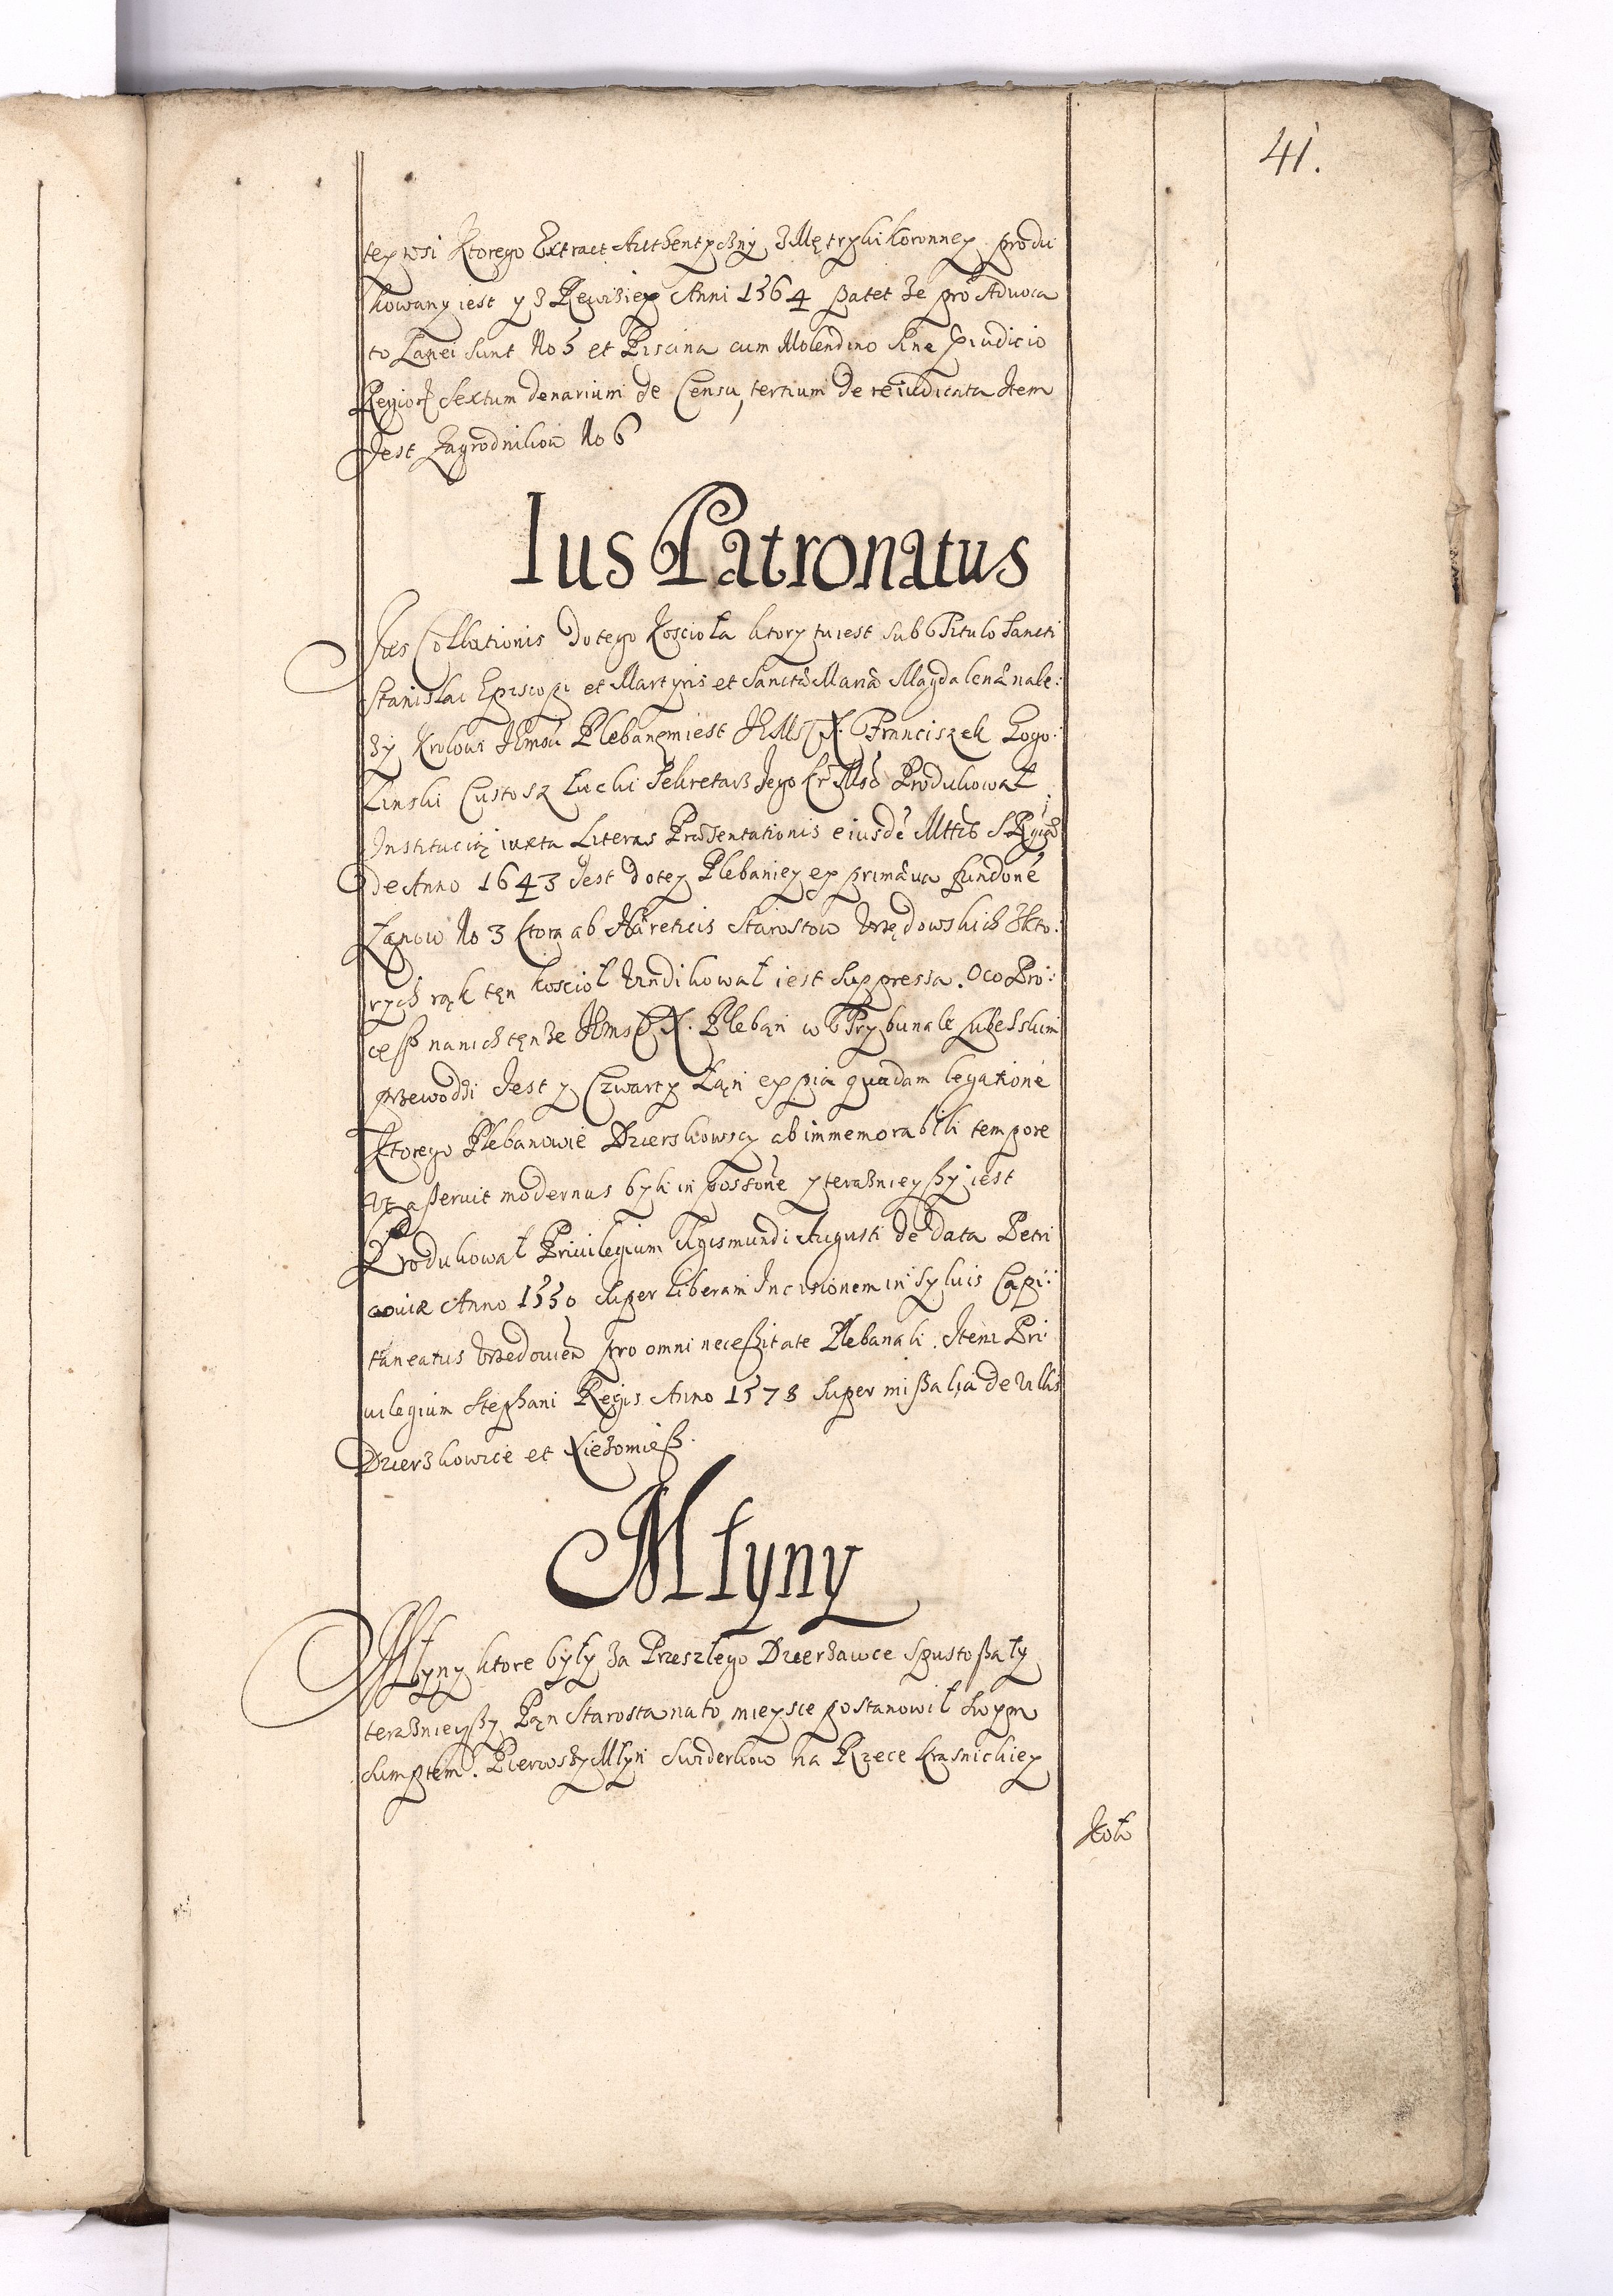 41.
tey wsi Ktorego Extract Authentyczny z Mętryki Koronney produ
kowany iest y z Rewiziey Anni 1564 patet że pro Advoca
to Lanei sunt No 5 et Piscina cum Molendino sine
Regior Sextum denarium de Censu, tertium de reiudicata Item
Jest Zagrodnikow No 6
Ius Patronatus
Jus Collationis do tego Koscioła ktory tu iest sub Titulo Sancti
Stanislai Episcopi et Martyris et Sanctæ Mariæ Magdalenæ nale:
ży Krolowi Plebanem iest X. Franciszek Gogo:
linski Custosz Łucki Sekretarz Jego Kr Mśći Produkował
Institucią iuxta Literas Præsentationis eiusdē Mttis
de Anno 1643 Jest do tey Plebaniey ex primæva fundōne
Łanow No 3 ktora ab Hæreticis Starostow Vrzędowskich z kto:
rych rąk ten koscioł windikował iest suppressa. Oco Pro:
cess na nich tęnże X. Pleban w Trybunale Lubelskim
przewodzi Jest y Czwarty Łan ex pia quadam legatione
Ktorego Plebanowie Dzierskowscy ab immemorabili tempore
Vt asseruit modernus byli in possōne y teraznieyszy iest
Produkował Privilegium Sigismundi Augusti de Data Petri
coviæ Anno 1550 super liberam Incisionem in Sylvis Capi:
taneatus Vrzedovien pro omni necessitate Plebanali. Item Pri
uilegium Stephani Regis Anno 1578 super missalia de villis
Dzierzkowice et Xiezomiesz.
Młyny
Młyny ktore były za Przeszłego Dzierżawce spustoszały
teraznieyszy Pąn Starosta na to mieysce postanowił swym
sumptem. Pierwszy Młyn Swiderkow na Rzece Krasnickiey